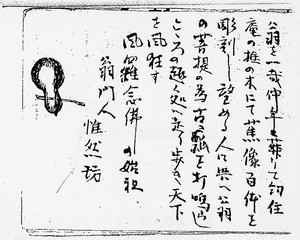 翁を義仲寺に葬りて幻住
庵の椎の木にて蕉像百体を
彫刻し望める人に與へ翁
の菩提の為古瓢を打鳴らし
こころの趣く処へ走り歩き天下
を風狂す
風羅念佛の始祖
翁門人
惟然坊